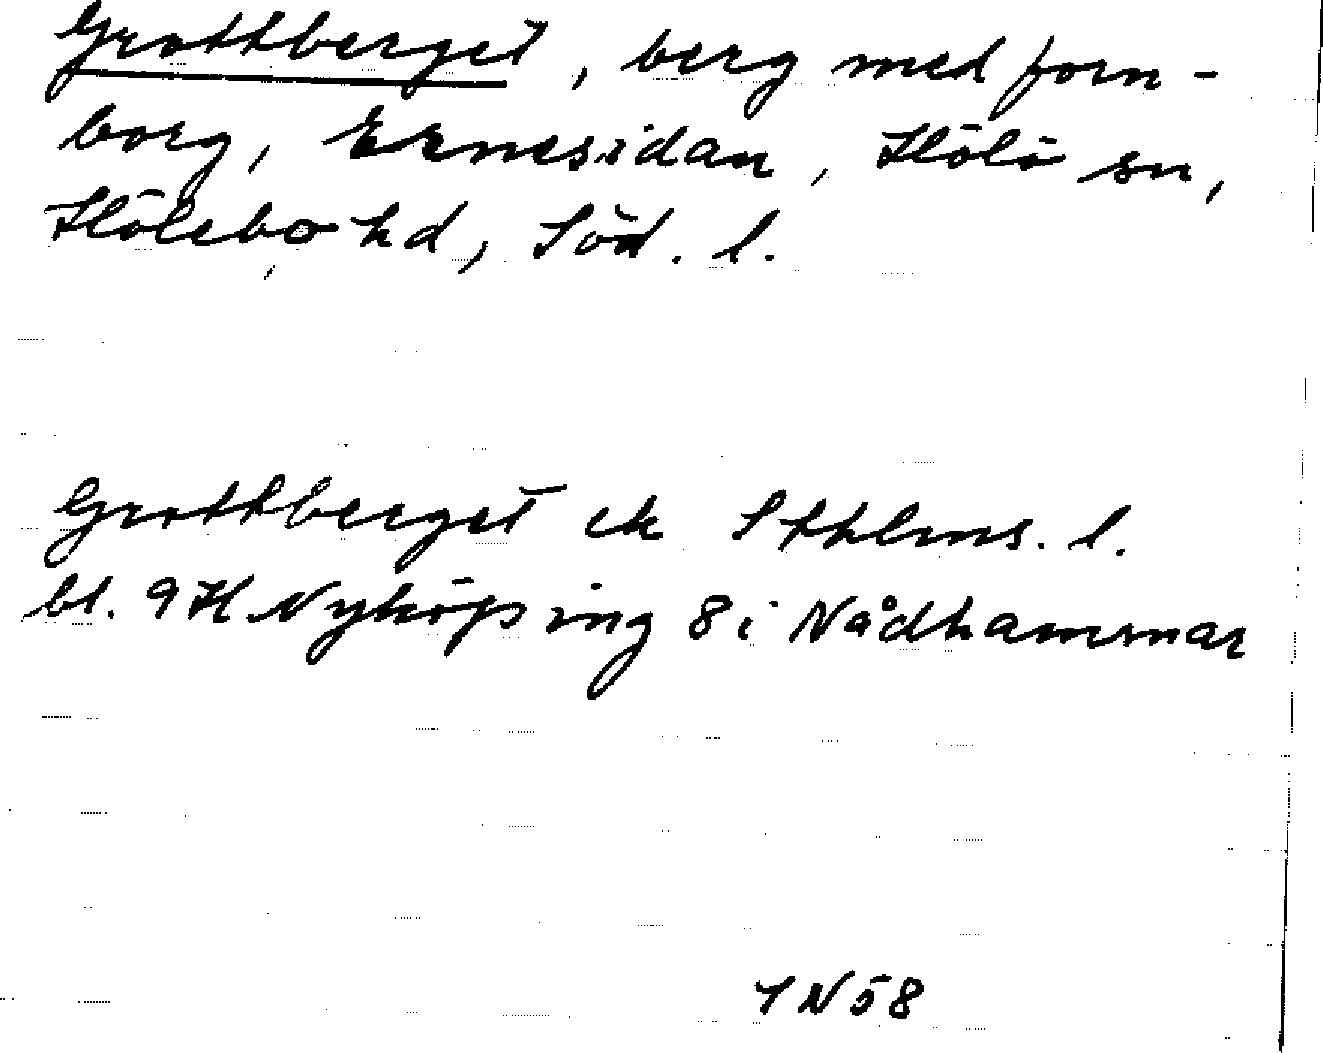 Grottberget, berg med forn-
borg, Ernesidan, Hölö sn,
Hölebo hd, Söd. l.
Grottberget ek Sthlms. l.
bl. 9H Nyköping 8i Nådhammar
IN 58